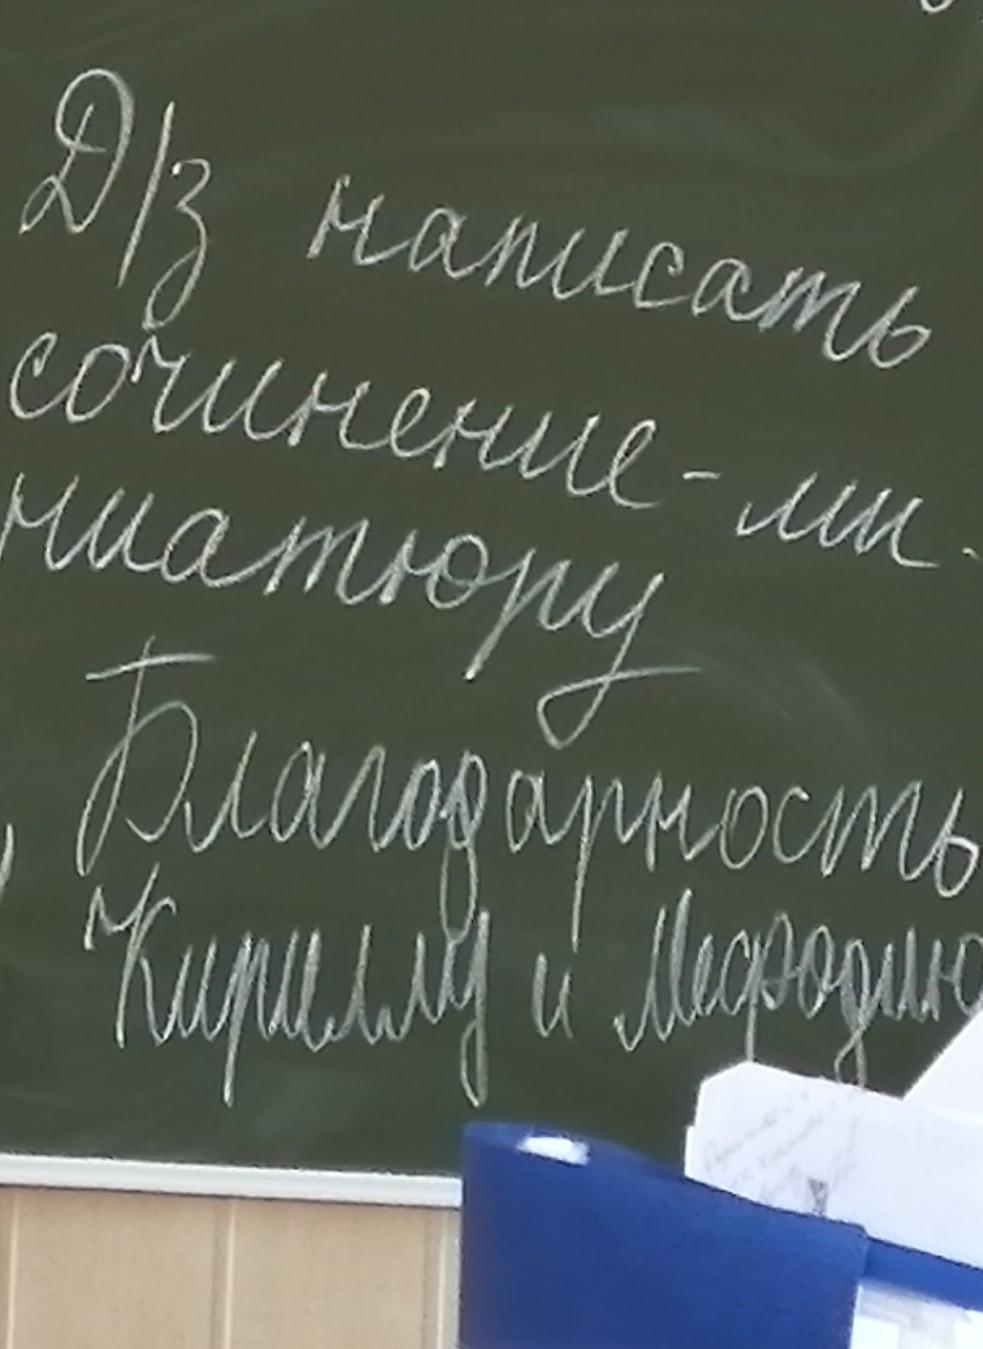 Д/з написать
сочинение-ми-
ниатюру
„Благодарность
Кириллу и Мефодию